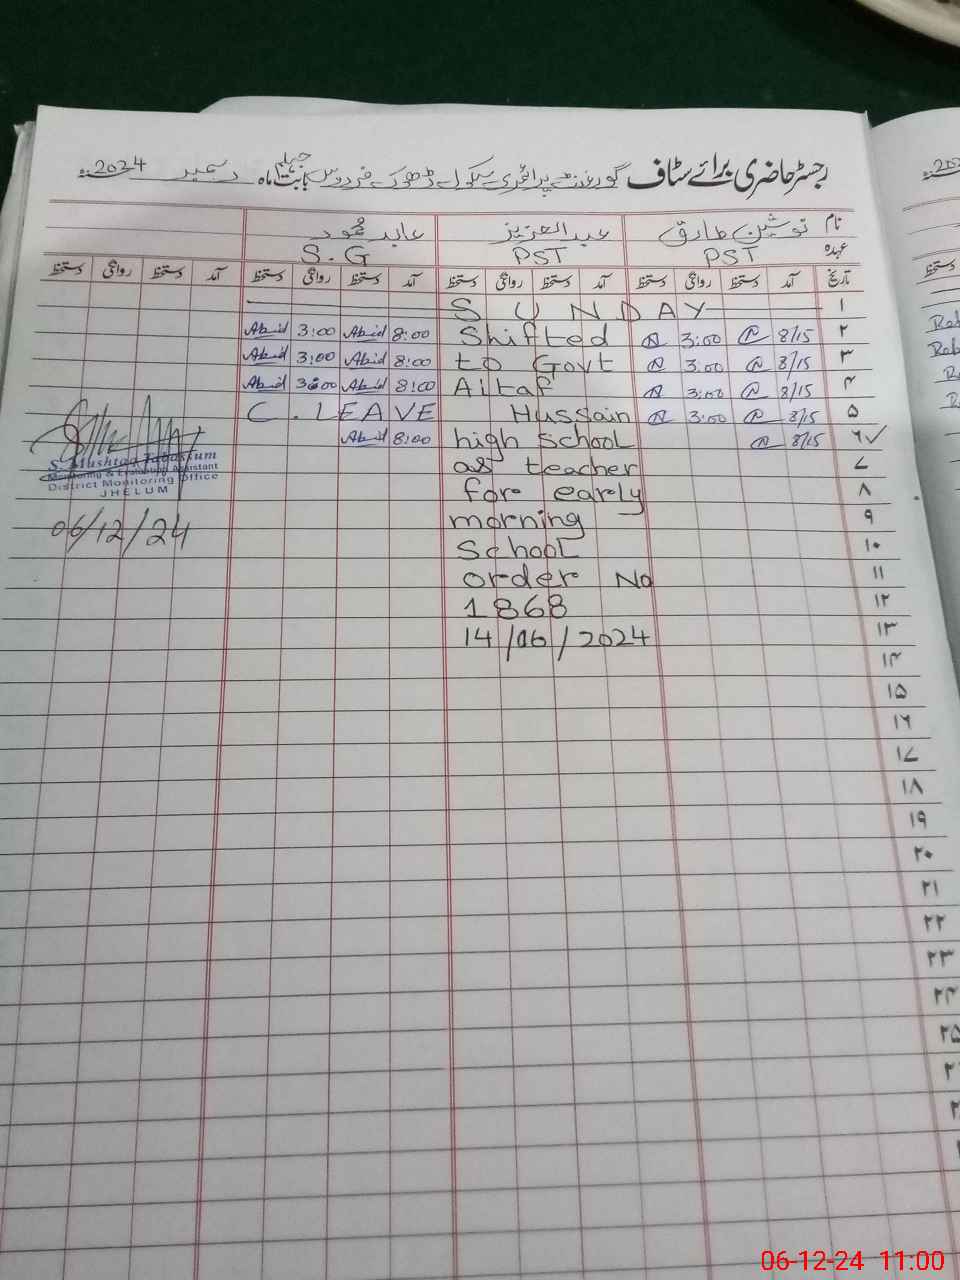 رجسٹر حاضری برائے سٹاف گورنمنٹ پرائمری سکول ڈھوک فردوس جہلم بابت ماہ دسمبر سنہ 2024
نام نوشین طارق عبدالعزیز عابد محمود
عہدہ PST PST S.G
تاریخ آمد دستخط روانگی دستخط آمد دستخط روانگی دستخط آمد دستخط روانگی دستخط آمد دستخط روانگی دستخط
۱ SUNDAY
۲ 8/15 3:00 Shifted 8:00 Abid 3:00 Abid
۳ 8/15 3:00 to Govt 8:00 Abid 3:00 Abid
۴ 8/15 3:00 Altaf 8:00 Abid 3:00 Abid
۵ 8/15 3:00 Hussain C. LEAVE
۶ ✓ 8/15 high school 8:00 Abid
۷ as teacher
۸ for early
۹ morning
۱۰ School
۱۱ order No
۱۲ 1868
۱۳ 14/06/2024
۱۴
۱۵
۱۶
۱۷
۱۸
۱۹
۲۰
۲۱
۲۲
۲۳
۲۴
۲۵
S. Mushtaq Tabassum
Monitoring & Evaluation Assistant
District Monitoring Office
JHELUM
06/12/24
06-12-24 11:00